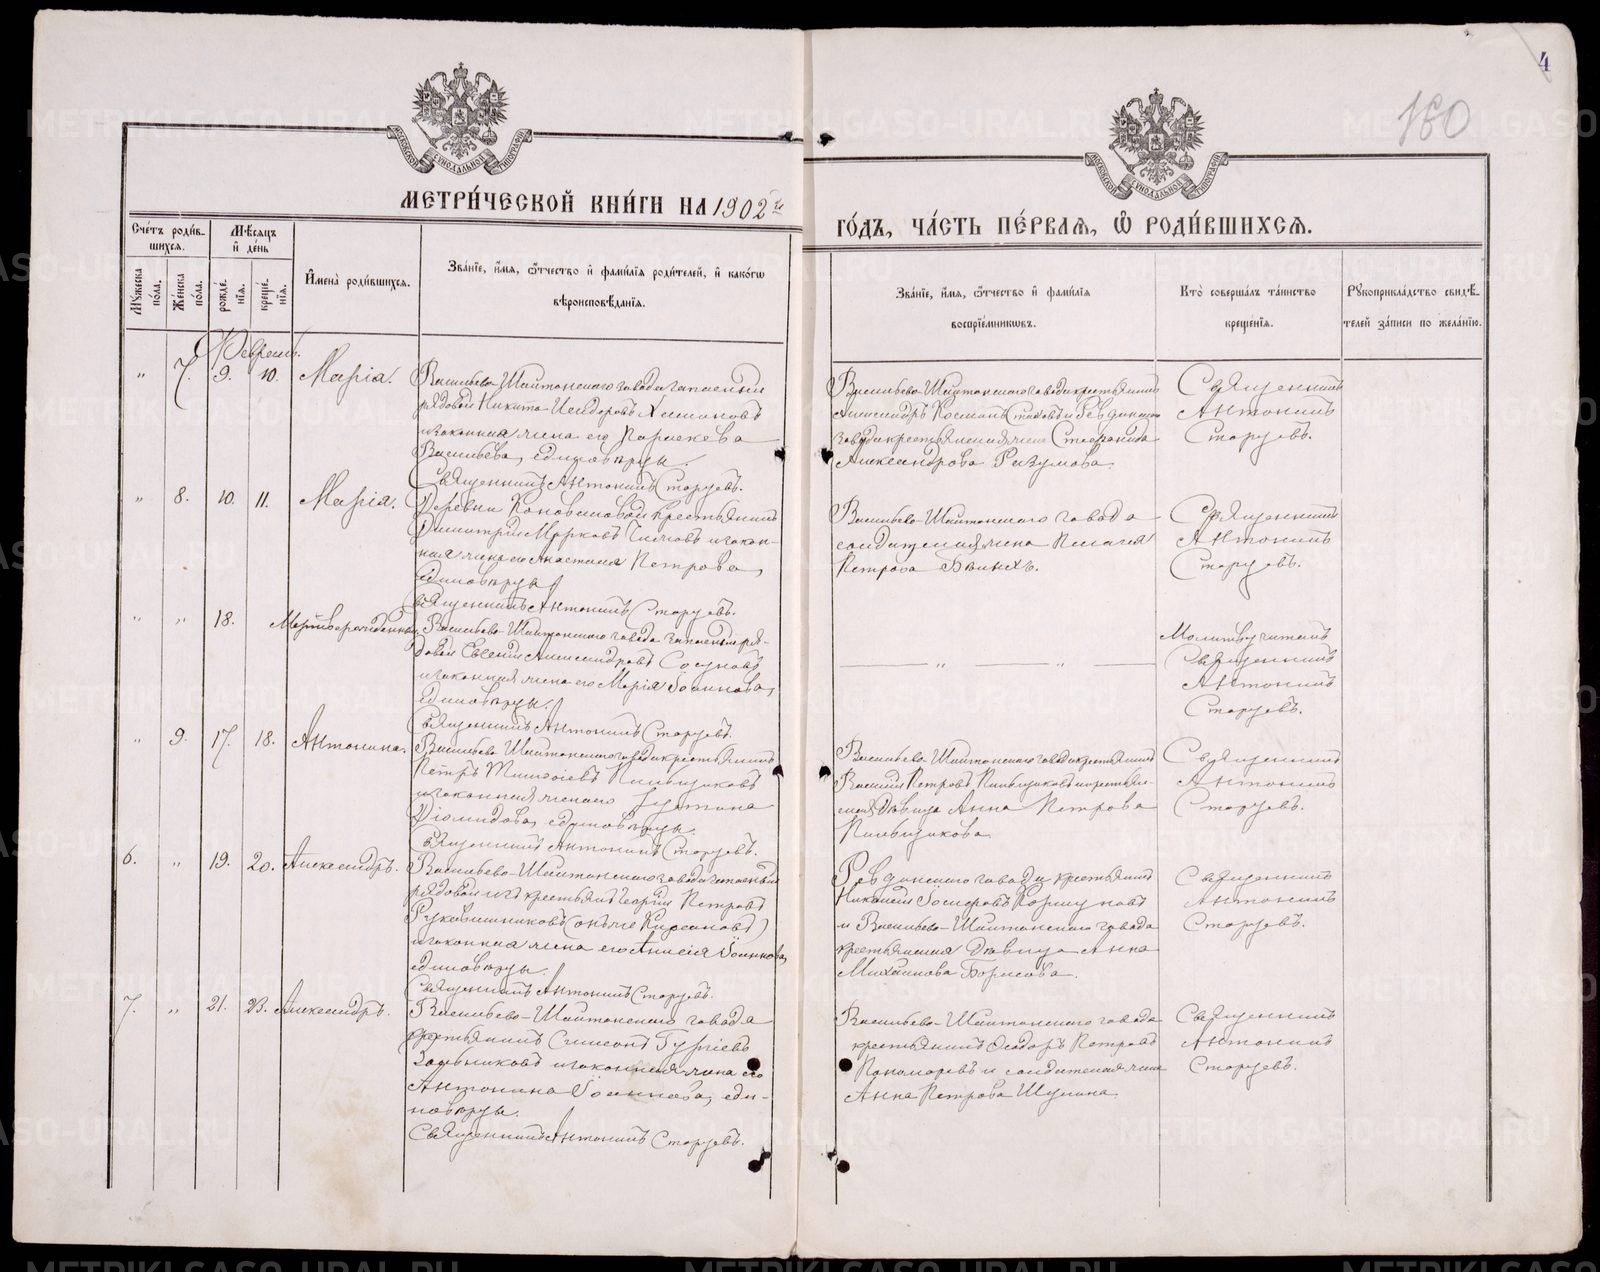 4
160
МЕТРИ́ЧЕСКОЙ КНИ́ГИ НА 1902й
ГО́ДЪ, ЧА́СТЬ ПЕ́РВАЯ, Ѡ҆ РОДИ́ВШИХСЯ.
Сче́тъ роди́в-
шихся.
Мѣ́сяцъ
и҆ де́нь
Му́жеска
по́ла.
Же́нска
по́ла.
рожде́-
нїя.
креще́-
нїя.
И҆мена̀ роди́вшихся.
Зва́нїе, и҆́мя, ѻ҆́тчество и҆ фами́лїя роди́телей, и҆ како́гѡ
вѣроисповѣ́данїя.
Зва́нїе, и҆́мя, ѻ҆́тчество и҆ фами́лїя
воспрїе́мникѡвъ.
Кто̀ соверша́лъ та́инство
креще́нїя.
Рукоприкла́дство свидѣ́-
телей за́писи по жела́нїю.
Февраль.
" 7. 9. 10. Марiа.
Васильево-Шайтанскаго завода запасный
рядовой Никита Исидоровъ
и законная жена его Параскева
Васильева, единовѣрцы.
Священникъ Антонинъ
Васильево-Шайтанскаго завода крестьянинъ
Александръ
завода крестьянская жена Стефанида
Александрова Разумова.
Священникъ
Антонинъ
" 8. 10. 11. Марiа.
Деревни Коноваловой крестьянинъ
Димитрій Марковъ и закон-
ная жена его Анастасiя Петрова,
единовѣрцы.
Священникъ Антонинъ
Васильево-Шайтанскаго завода
солдатская жена Пелагiя
Петрова
Священникъ
Антонинъ
" " 18. Мертворожденный
Васильево-Шайтанскаго завода запасный ря-
довой Евгенiй Александровъ
и законная жена его Марiя Іоаннова,
единовѣрцы.
Священникъ Антонинъ
" "
Молитву читалъ
Священникъ
Антонинъ
" 9. 17. 18. Антонина.
Васильево-Шайтанскаго завода крестьянинъ
Петръ Пильщиковъ
и законная жена его Іустина
Дiомидова, единовѣрцы.
Священникъ Антонинъ
Васильево-Шайтанскаго завода крестьянинъ
Василiй Петровъ Пильщиковъ и крестьян-
ская дѣвица Анна Петрова
Пильщикова.
Священникъ
Антонинъ
6. " 19. 20. Александръ.
Васильево-Шайтанскаго завода запасный
рядовой изъ крестьянъ Георгiй Петровъ
Рукавишниковъ
и законная жена его Анисiя Іоаннова,
единовѣрцы.
Священникъ Антонинъ
Ревдинскаго завода крестьянинъ
Николай Коршуновъ
и Васильево-Шайтанскаго завода
крестьянская дѣвица Анна
Михайлова Борисова.
Священникъ
Антонинъ
7. " 21. 23. Александръ.
Васильево-Шайтанскаго завода
крестьянинъ Симеонъ Гурiевъ
и законная жена его
Антонина Іоаннова, еди-
новѣрцы.
Священникъ Антонинъ
Васильево-Шайтанскаго завода
крестьянинъ Ѳеодоръ Петровъ
Пономаревъ и солдатская жена
Анна Петрова Шулина.
Священникъ
Антонинъ